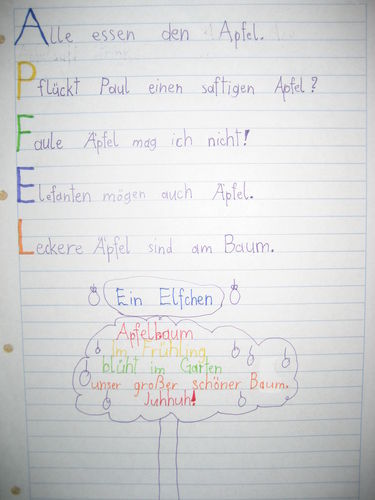 Alle essen den Apfel.
Pflückt Paul einen saftigen Apfel?
Faule Äpfel mag ich nicht!
Elefanten mögen auch Äpfel.
Leckere Äpfel sind am Baum.
Ein Elfchen
Apfelbaum
Im Frühling
blüht im Garten
unser großer schöner Baum.
Juhhuh!